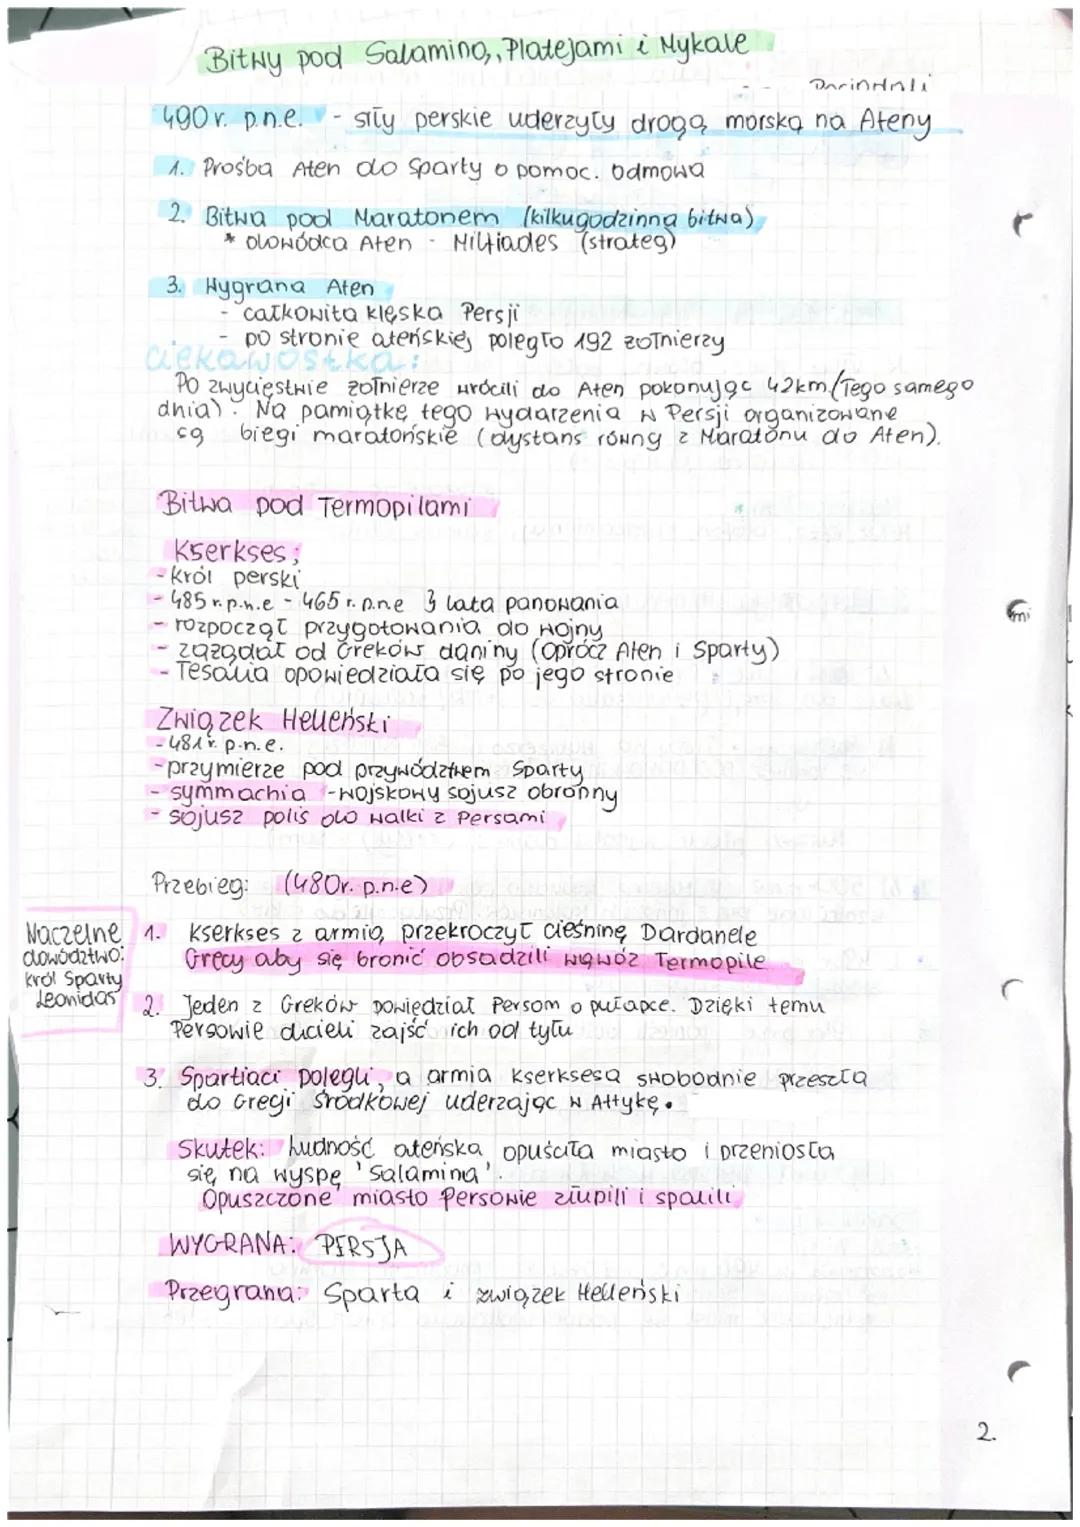 Bitwy pod Salaminą, Platejami i Mykale
490 r. p.n.e. - siły perskie uderzyły drogą morską na Ateny
1. Prośba Aten do Sparty o pomoc. Odmowa
2. Bitwa pod Maratonem (kilkugodzinna bitwa)
* dowódca Aten - Miltiades (strateg)
3. Wygrana Aten
- całkowita klęska Persji
- po stronie ateńskiej poległo 192 żołnierzy
ciekawostka:
Po zwycięstwie żołnierze wrócili do Aten pokonując 42km (Tego samego
dnia). Na pamiątkę tego wydarzenia w Persji organizowane
są biegi maratońskie (dystans równy z Maratonu do Aten).
Bitwa pod Termopilami
Kserkses;
- król perski
- 485 r.p.n.e - 465 r.p.n.e } lata panowania
- rozpoczął przygotowania do wojny
- zażądał od Greków daniny (oprócz Aten i Sparty)
- Tesalia opowiedziała się po jego stronie
Związek Helleński
- 481 r. p.n.e.
- przymierze pod przywództwem Sparty
- symmachia - wojskowy sojusz obronny
- sojusz polis do walki z Persami
Przebieg: (480r. p.n.e)
Naczelne
dowództwo:
król Sparty
Leonidas
1. Kserkses z armią przekroczył cieśninę Dardanele
Grecy aby się bronić obsadzili wąwóz Termopile
2. Jeden z Greków powiedział Persom o pułapce. Dzięki temu
Persowie chcieli zajść ich od tyłu
3. Spartiaci polegli, a armia Kserksesa swobodnie przeszła
do Grecji Środkowej uderzając w Attykę.
Skutek: Ludność ateńska opuściła miasto i przeniosła
się na wyspę 'Salamina'.
Opuszczone miasto Persowie złupili i spalili
WYGRANA: PERSJA
Przegrana: Sparta i związek Helleński
2.